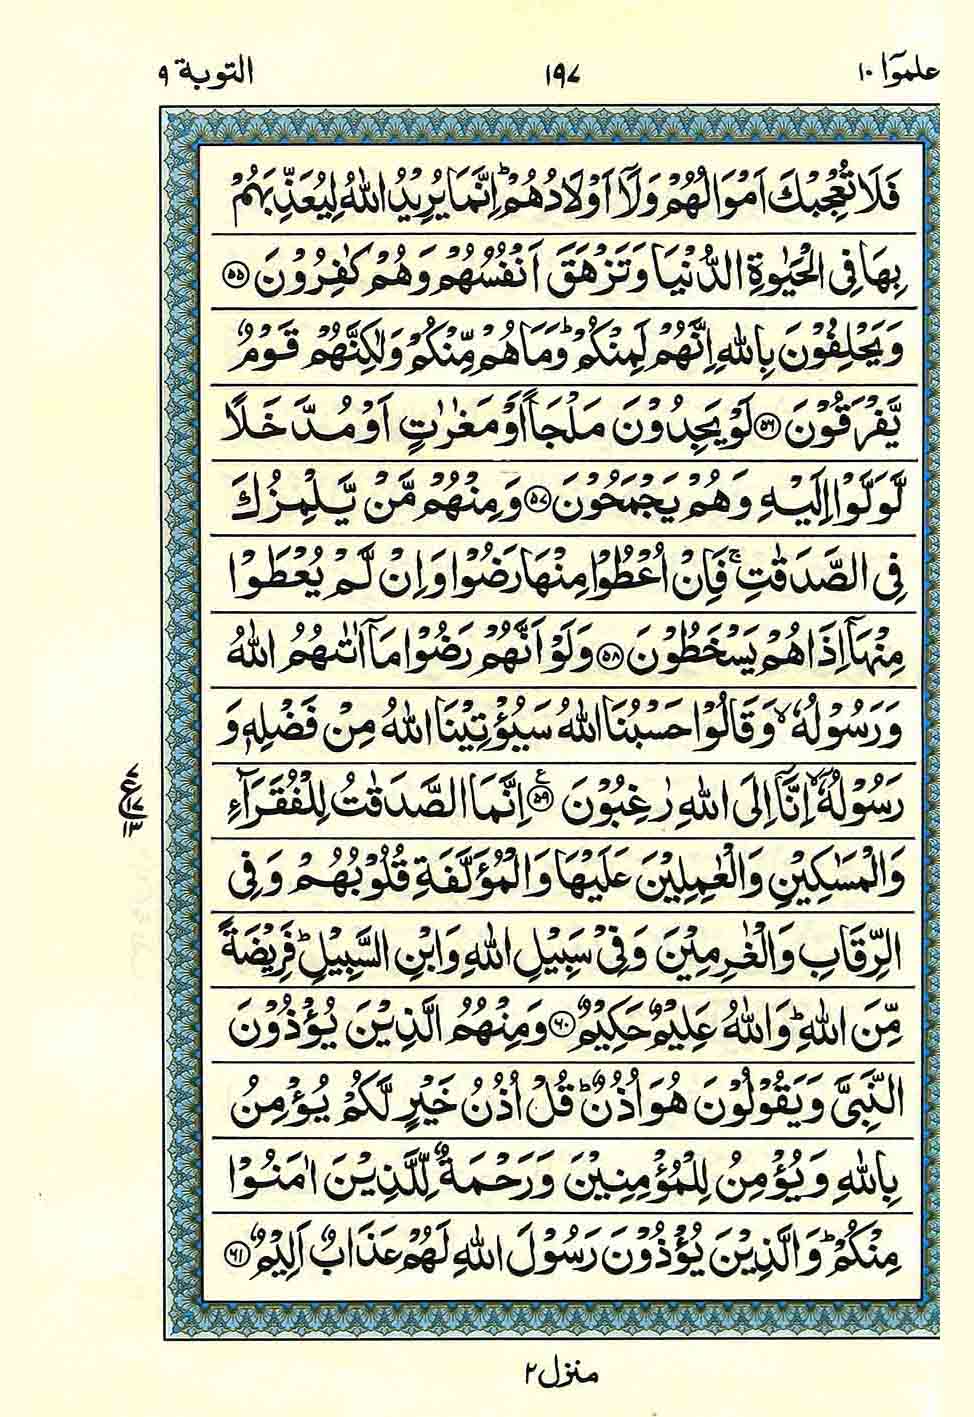 علموٓا ١٠ ١٩٧ التوبة ٩
فَلَا تُعْجِبْكَ اَمْوَالُهُمْ وَلَآ اَوْلَادُهُمْ ؕ اِنَّمَا يُرِيْدُ اللّٰهُ لِيُعَذِّبَهُمْ
بِهَا فِى الْحَيٰوةِ الدُّنْيَا وَتَزْهَقَ اَنْفُسُهُمْ وَهُمْ كٰفِرُوْنَ ۝۵۵
وَيَحْلِفُوْنَ بِاللّٰهِ اِنَّهُمْ لَمِنْكُمْ ؕ وَمَا هُمْ مِّنْكُمْ وَلٰكِنَّهُمْ قَوْمٌ
يَّفْرَقُوْنَ ۝۵۶ لَوْ يَجِدُوْنَ مَلْجَاً اَوْ مَغٰرٰتٍ اَوْ مُدَّخَلًا
لَّوَلَّوْا اِلَيْهِ وَهُمْ يَجْمَحُوْنَ ۝۵۷ وَمِنْهُمْ مَّنْ يَّلْمِزُكَ
فِى الصَّدَقٰتِ ۚ فَاِنْ اُعْطُوْا مِنْهَا رَضُوْا وَاِنْ لَّمْ يُعْطَوْا
مِنْهَآ اِذَا هُمْ يَسْخَطُوْنَ ۝۵۸ وَلَوْ اَنَّهُمْ رَضُوْا مَآ اٰتٰىهُمُ اللّٰهُ
وَرَسُوْلُهٗ ۙ وَقَالُوْا حَسْبُنَا اللّٰهُ سَيُؤْتِيْنَا اللّٰهُ مِنْ فَضْلِهٖ وَ
رَسُوْلُهٗۤ ۙ اِنَّآ اِلَى اللّٰهِ رٰغِبُوْنَ ۝۵۹ اِنَّمَا الصَّدَقٰتُ لِلْفُقَرَآءِ
ع ١٧ ١٣
وَالْمَسٰكِيْنِ وَالْعٰمِلِيْنَ عَلَيْهَا وَالْمُؤَلَّفَةِ قُلُوْبُهُمْ وَفِى
الرِّقَابِ وَالْغٰرِمِيْنَ وَفِىْ سَبِيْلِ اللّٰهِ وَابْنِ السَّبِيْلِ ؕ فَرِيْضَةً
مِّنَ اللّٰهِ ؕ وَاللّٰهُ عَلِيْمٌ حَكِيْمٌ ۝۶۰ وَمِنْهُمُ الَّذِيْنَ يُؤْذُوْنَ
النَّبِىَّ وَيَقُوْلُوْنَ هُوَ اُذُنٌ ؕ قُلْ اُذُنُ خَيْرٍ لَّكُمْ يُؤْمِنُ
بِاللّٰهِ وَيُؤْمِنُ لِلْمُؤْمِنِيْنَ وَرَحْمَةٌ لِّلَّذِيْنَ اٰمَنُوْا
مِنْكُمْ ؕ وَالَّذِيْنَ يُؤْذُوْنَ رَسُوْلَ اللّٰهِ لَهُمْ عَذَابٌ اَلِيْمٌ ۝۶۱
منزل ٢